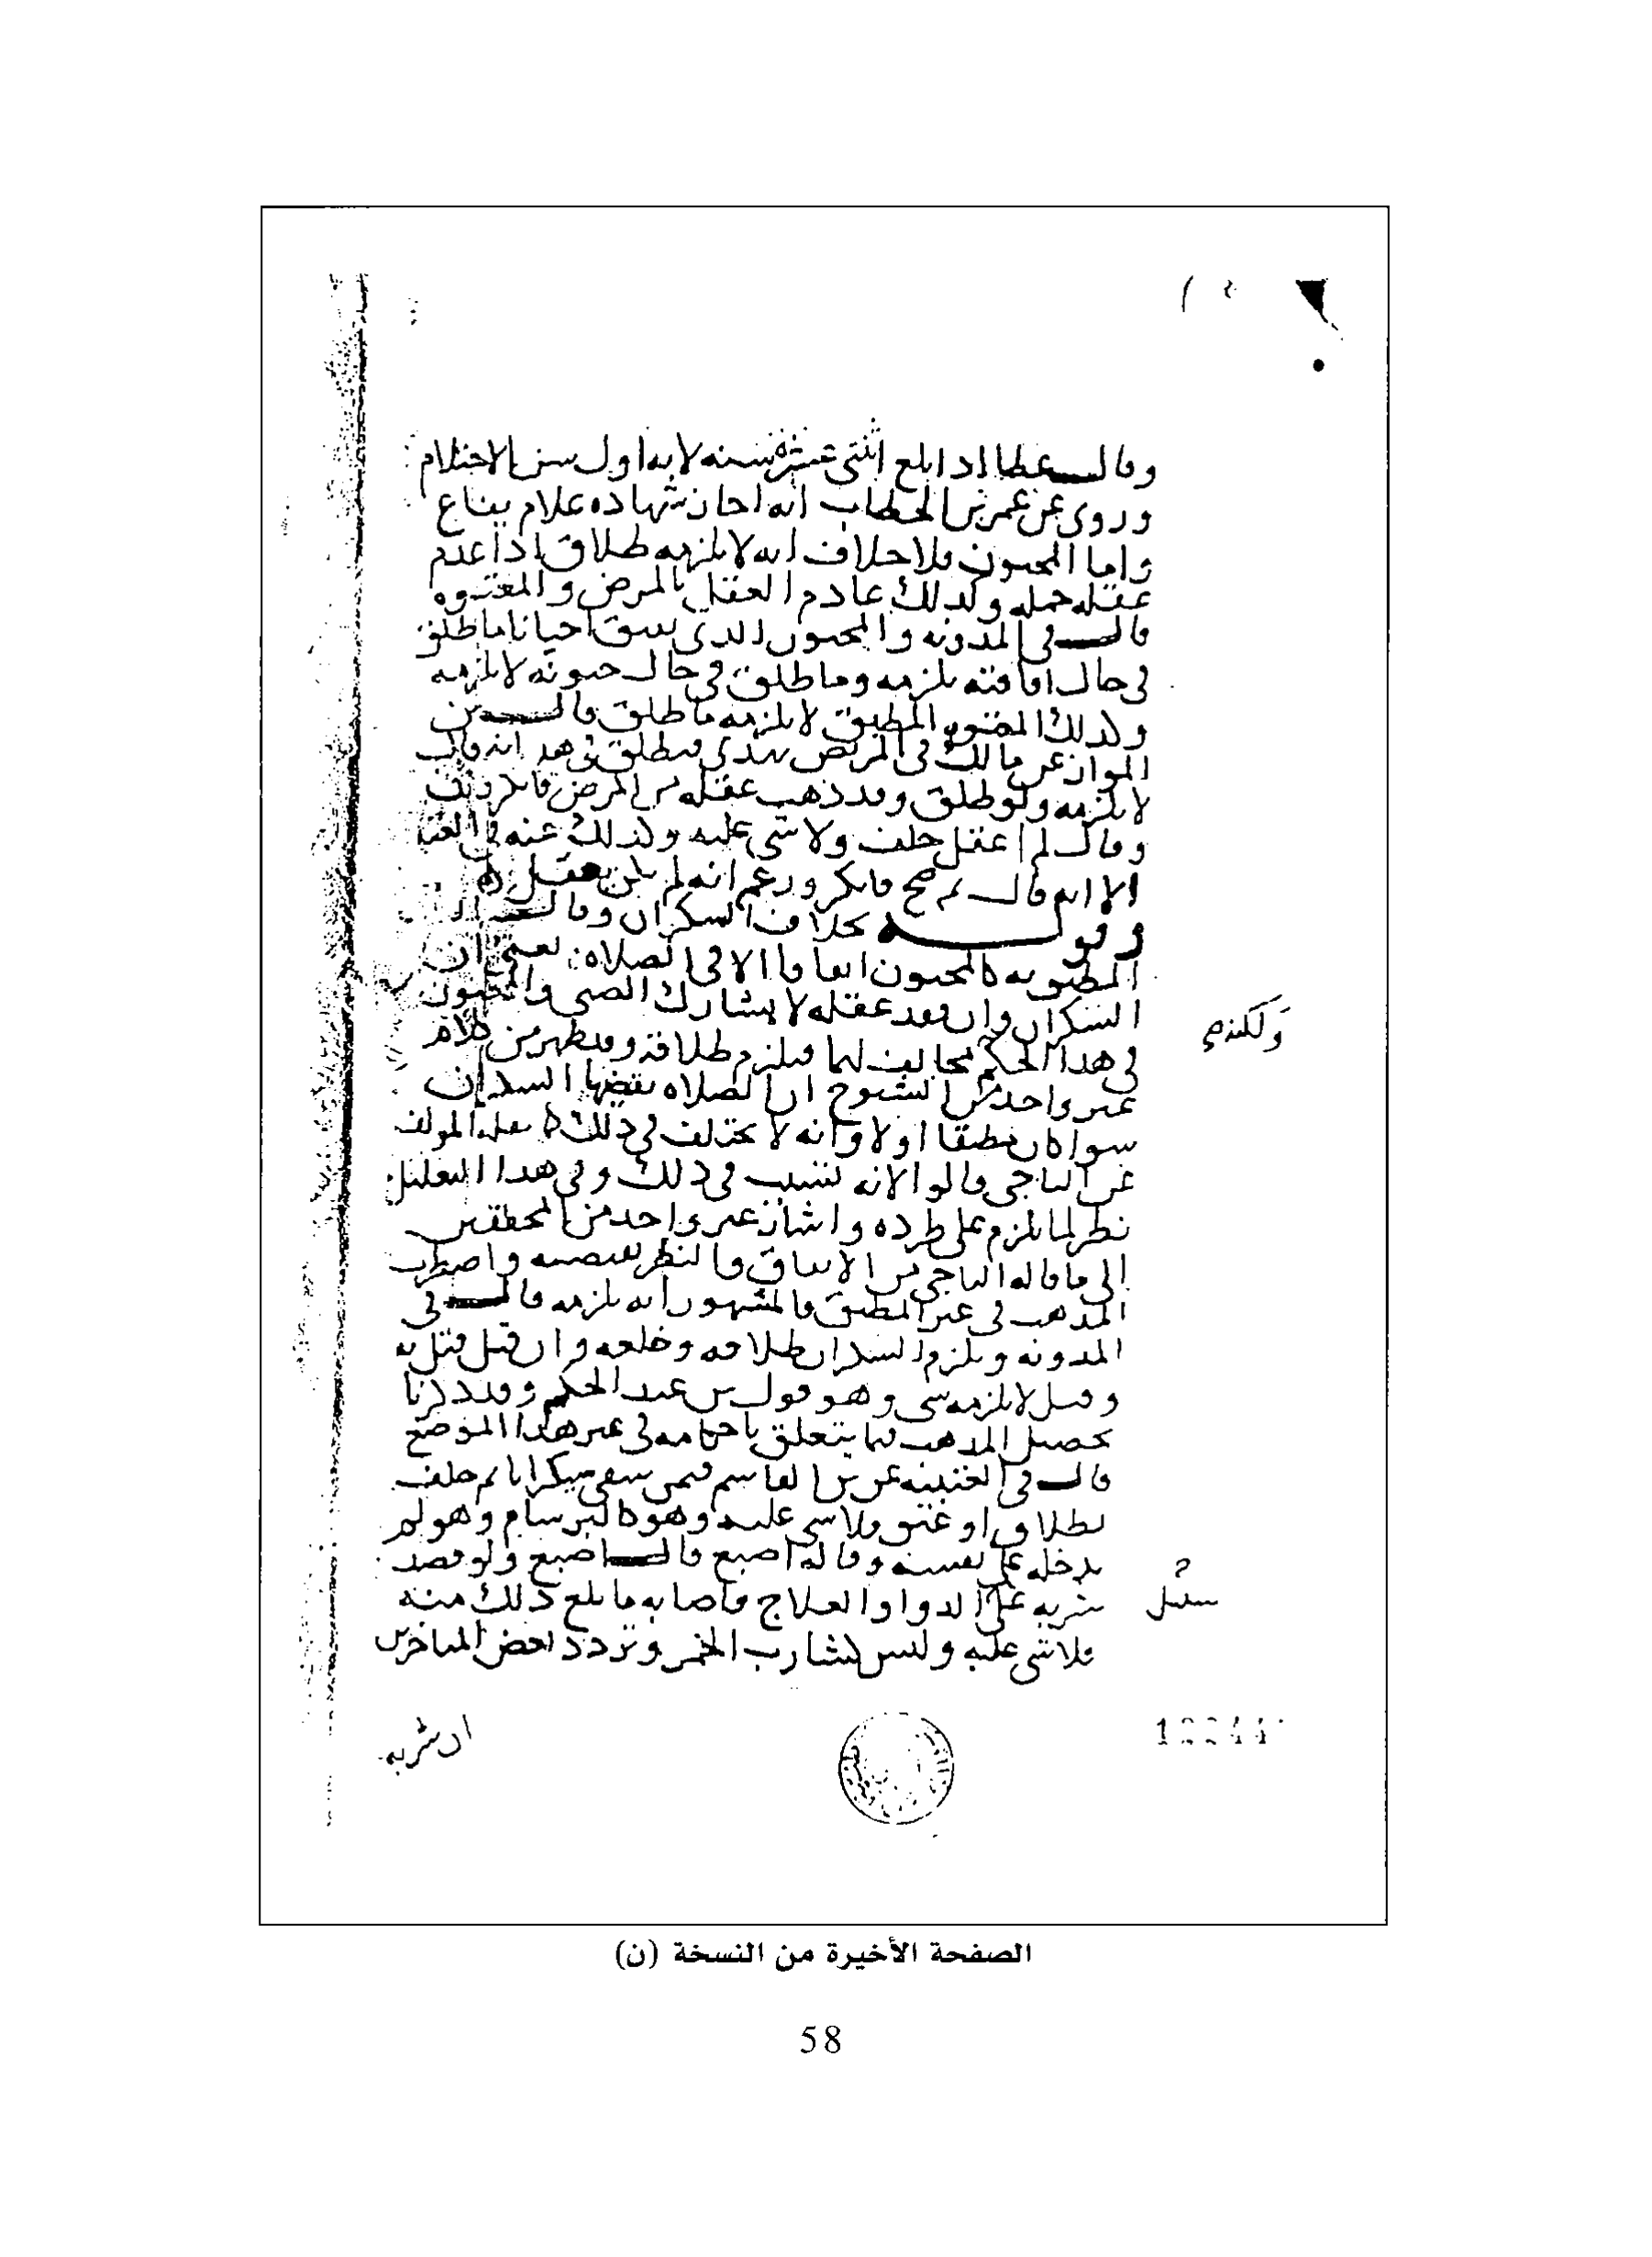 وقال عطا اذا بلغ اثنتي عشرة سنه لانه اول سن الاحتلام
وروى عن عمر بن الخطاب انه اجاز شهاده غلام يفاع
واما المجنون فلا خلاف انه لا يلزمه طلاق اذا عدم
عقله جمله وكذلك عادم العقل بالمرض والمعتوه
قال في المدونه والمجنون الذي يفيق احيانا ما طلق
في حال افاقته يلزمه وما طلق في حال جنونه لا يلزمه
وكذلك المعتوه المطبق لا يلزمه ما طلق قال بن
المواز عن مالك في المريض يهذي فيطلق في هذيانه قال
لا يلزمه ولو طلق وقد ذهب عقله من المرض فانكر ذلك
وقال لم اعقل حلف ولا شي عليه وكذلك عنه في العتبيه
الا انه قال ثم صح فانكر وزعم انه لم يكن يعقل
وقوله بخلاف السكران وقال
المطبق به كالمجنون اتفاقا الا في الصلاه يعني ان
السكران وان فقد عقله لا يشارك الصبي والمجنون
ولكنه
في هذا الحكم مخالف لهما فيلزم طلاقه ويظهر من كلام
غير واحد من الشيوخ ان الصلاه يقضيها السكران
سوا كان مطبقا او لا وانه لا يختلف في ذلك كما نقله المولف
عن الباجي قالوا لانه تسبب في ذلك وفي هذا التعليل
نظر لما يلزم على طرده واشار غير واحد من المحققين
الى ما قاله الباجي من الاتفاق والنظر يقتضيه واضطرب
المذهب في غير المطبق والمشهور انه يلزمه قال في
المدونه ويلزم السكران طلاقه وخلعه وان قتل قتل به
وقيل لا يلزمه شي وهو قول بن عبد الحكم وقد ذكرنا
تحصيل المذهب فيما يتعلق باحكامه في غير هذا الموضع
قال في العتبيه عن بن القاسم فيمن سقي سيكرانا ثم حلف
بطلاق او عتق فلا شي عليه وهو كالبرسام وهو لم
يدخله على نفسه وقاله اصبغ قال اصبغ ولو قصد
شربه على الدوا والعلاج فاصابه ما بلغ ذلك منه
فلا شي عليه وليس كشارب الخمر وتردد بعض المتاخرين
ان شربه
الصفحة الأخيرة من النسخة (ن)
58